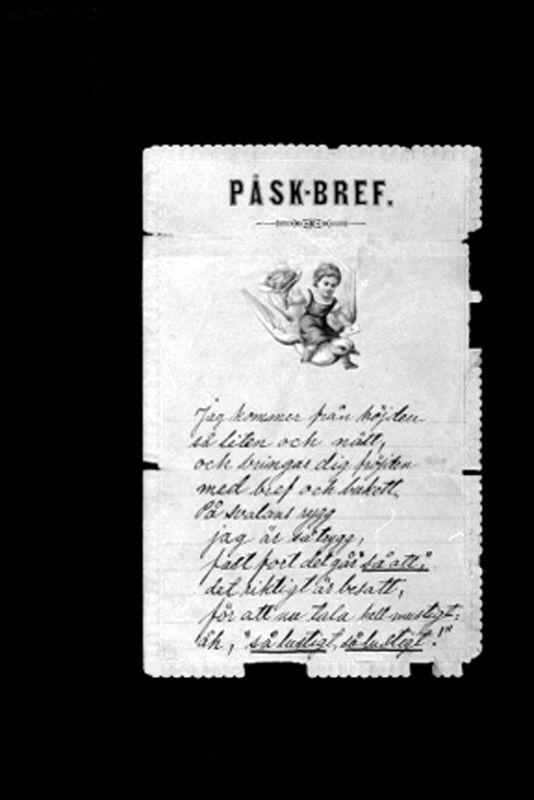 PÅSK-BREF.
Jag kommer från höjden
så liten och nätt,
och bringar dig fröjden
med bref och bakett.
På svalans rygg
jag är så trygg,
fast fort det går "så att",
det riktigt är besatt,
för att nu tala helt mustigt:
åh, "så lustigt, så lustigt!"